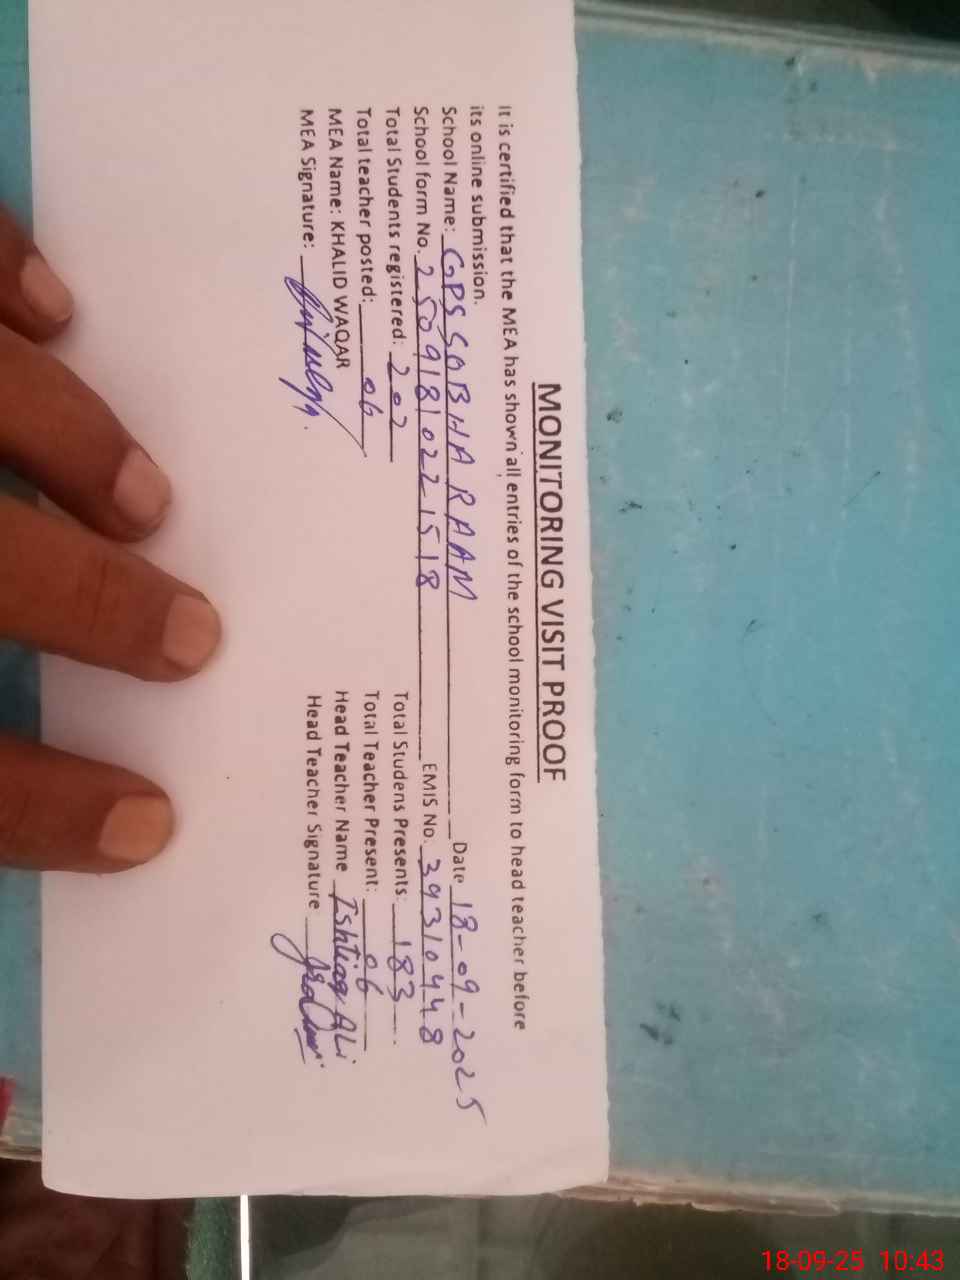 MONITORING VISIT PROOF
It is certified that the MEA has shown all entries of the school monitoring form to head teacher before
its online submission.
School Name: GPS SOBHA RAAM Date 18-09-2025
School form No. 25091810221518 EMIS No. 39310448
Total Students registered: 202 Total Studens Presents: 183
Total teacher posted: 06 Total Teacher Present: 06
MEA Name: KHALID WAQAR Head Teacher Name Ishtiaq ALi
MEA Signature: Head Teacher Signature
18-09-25 10:43